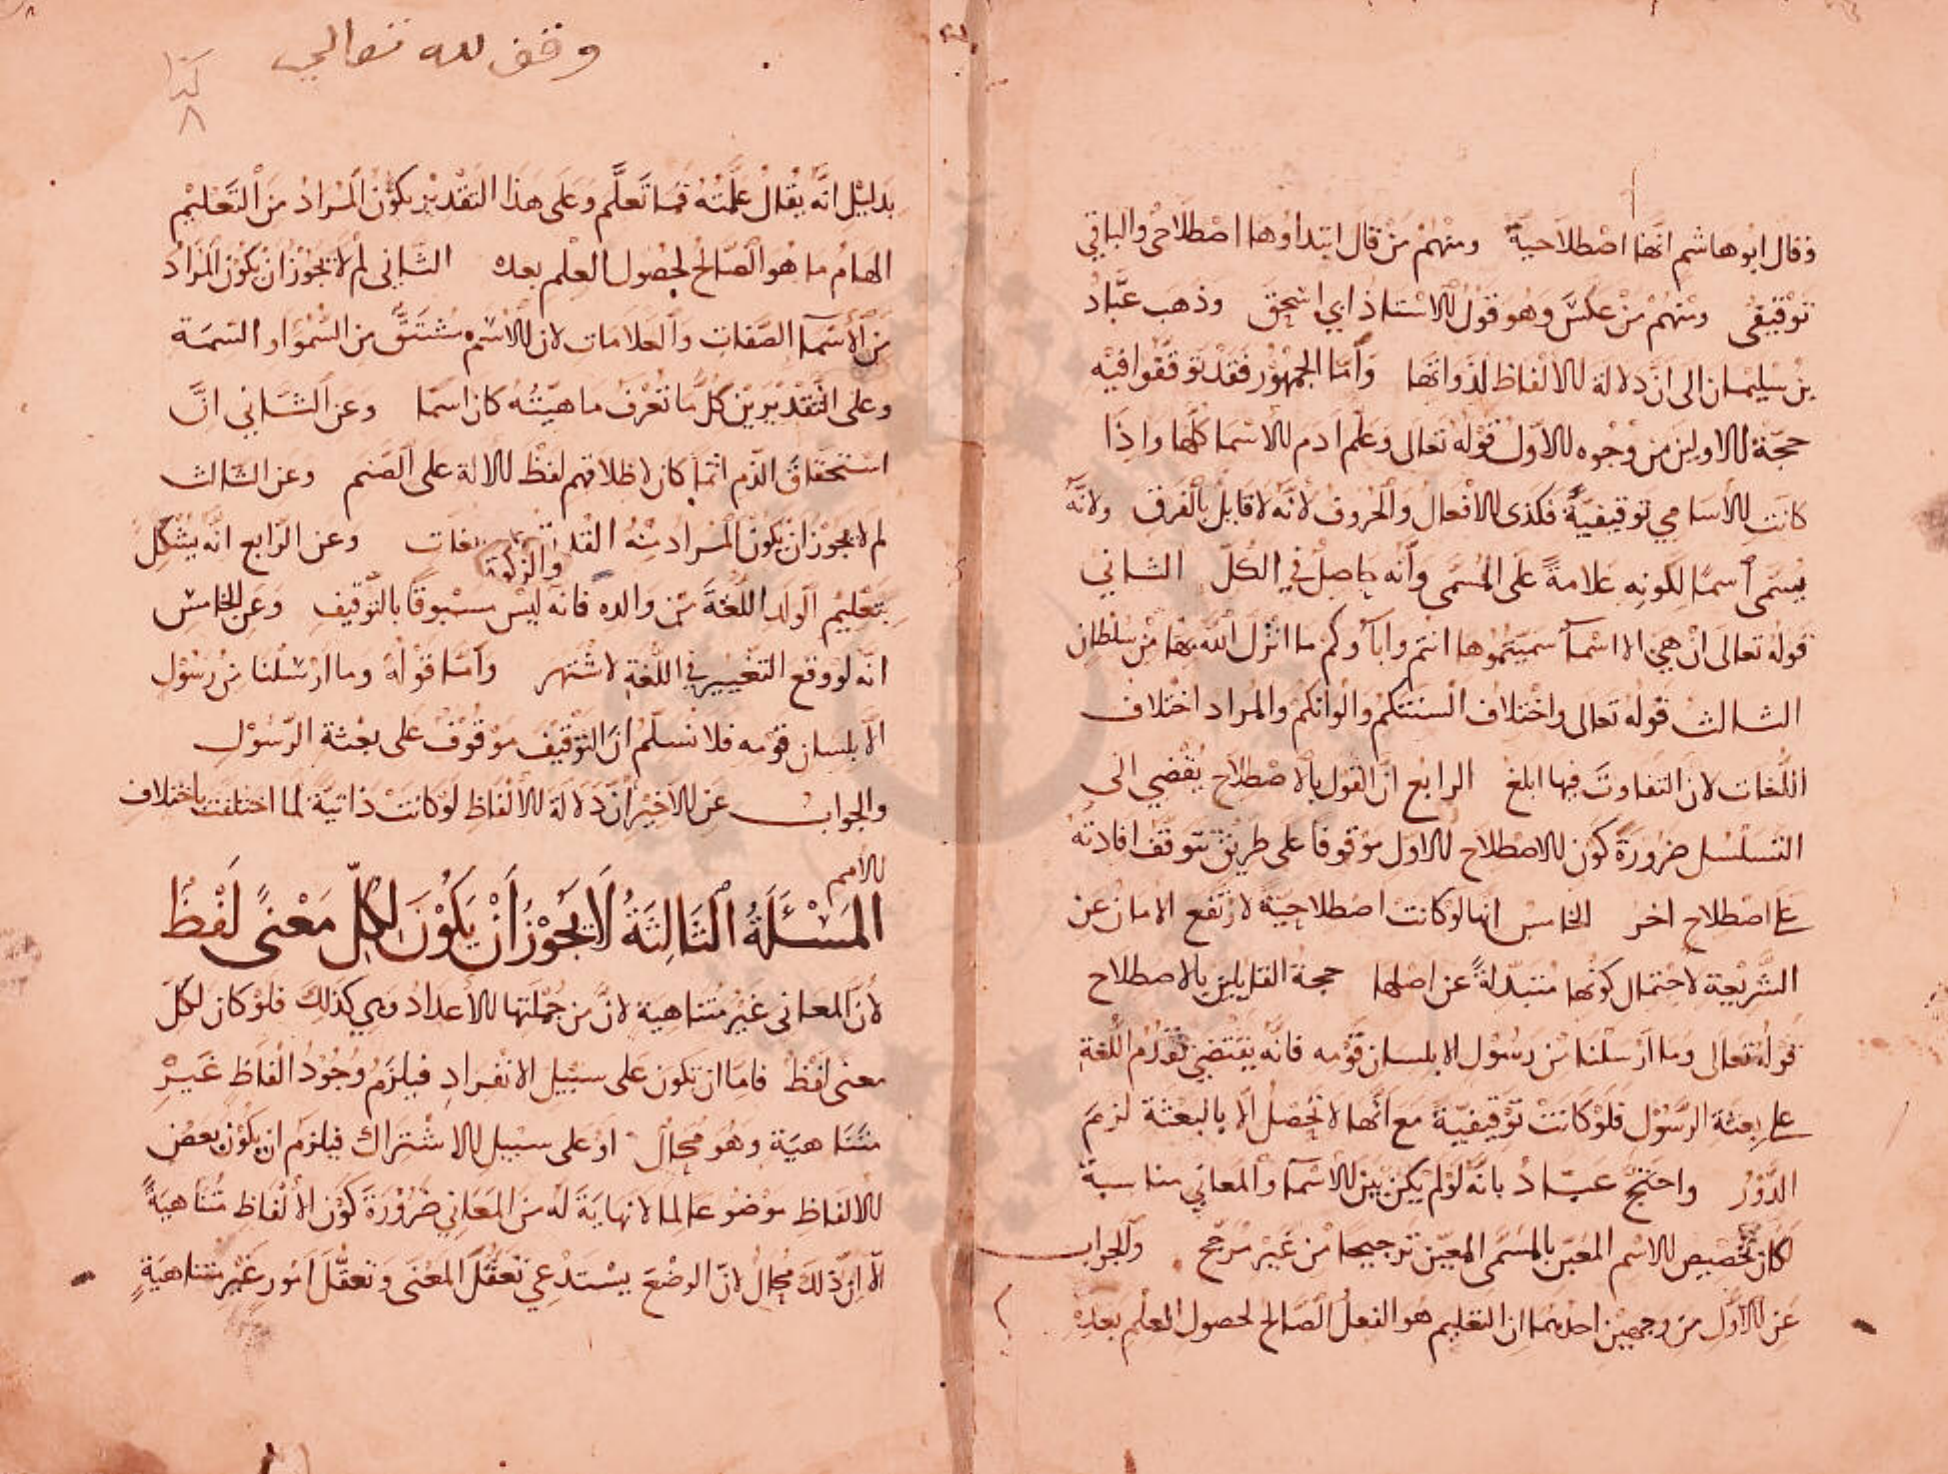 وقال ابو هاشم انها اصطلاحية ومنهم من قال ابتداوها اصطلاحى والباقي
توقيفى ومنهم من عكس وهو قول الاستاذ ابي اسحق وذهب عباد
بن سليمان الى ان دلالة الالفاظ لذواتها وأما الجمهور فقد توقفوا فيه
حجة الاولين من وجوه الاول قوله تعالى وعلم ادم الاسما كلها واذا
كانت الأسامي توقيفية فكذى الافعال والحروف لأنه لا قابل بالفرق ولانه
يسمى اسما لكونه علامة على المسمى وأنه حاصل في الكل الثاني
قوله تعالى ان هي الا اسمآ سميتموها انتم واباؤكم ما انزل الله بها من سلطان
الثالث قوله تعالى واختلاف السنتكم والوانكم والمراد اختلاف
اللغات لان التفاوت فيها ابلغ الرابع ان القول بالاصطلاح يفضي الى
التسلسل ضرورة كون الاصطلاح الاول موقوفا على طريق تتوقف افادته
على اصطلاح اخر الخامس انها لو كانت اصطلاحية لارتفع الامان عن
الشريعة لاحتمال كونها متبدلة عن اصلها حجة القايلين بالاصطلاح
قوله تعالى وما ارسلنا من رسول الا بلسان قومه فانه يقتضي تقدم اللغة
على بعثة الرسول فلو كانت توقيفية مع انها لا تحصل الا بالبعثة لزم
الدور واحتج عباد بانه لو لم يكن بين الاسما والمعاني مناسبة
لكان تخصيص الاسم المعين بالمسمى المعين ترجيحا من غير مرجح والجواب
عن الاول من وجهين احدهما ان التعليم هو الفعل الصالح لحصول العلم بعده
وقف لله تعالى
٨
بدليل انه يقال علمته فما تعلم وعلى هذا التقدير يكون المراد من التعليم
الهام ما هو الصالح لحصول العلم بعده الثانى لم لا يجوز ان يكون المراد
من الأسمآ الصفات والعلامات لان الاسم مشتق من السمو او السمة
وعلى التقديرين كل ما تعرف ماهيته كان اسما وعن الثاني ان
استحقاق الذم انما كان لاطلاقهم لفظ الالة على الصنم وعن الثالث
لم لا يجوز ان يكون المراد منه وعن الرابع انه يشكل
بتعليم الولد اللغة من والده فانه ليس مسبوقا بالتوقيف وعن الخامس
انه لو وقع التغيير في اللغة لاشتهر وأما قوله وما ارسلنا من رسول
الا بلسان قومه فلا نسلم ان التوقيف موقوف على بعثة الرسول
والجواب عن الاخير أن دلالة الالفاظ لو كانت ذاتية لما اختلفت باختلاف
الامم
المسئلة الثالثة لا يجوز أن يكون لكل معنى لفظ
لأن المعانى غير متناهية لان من جملتها الأعداد وهي كذلك فلو كان لكل
معنى لفظ فاما ان تكون على سبيل الانفراد فيلزم وجود الفاظ غير
متناهية وهو محال او على سبيل الاشتراك فيلزم ان يكون بعض
الالفاظ موضوعا لما لا نهاية له من المعاني ضرورة كون الالفاظ متناهية
الا ان ذلك محال لان الوضع يستدعي تعقل المعنى وتعقل امور غير متناهية